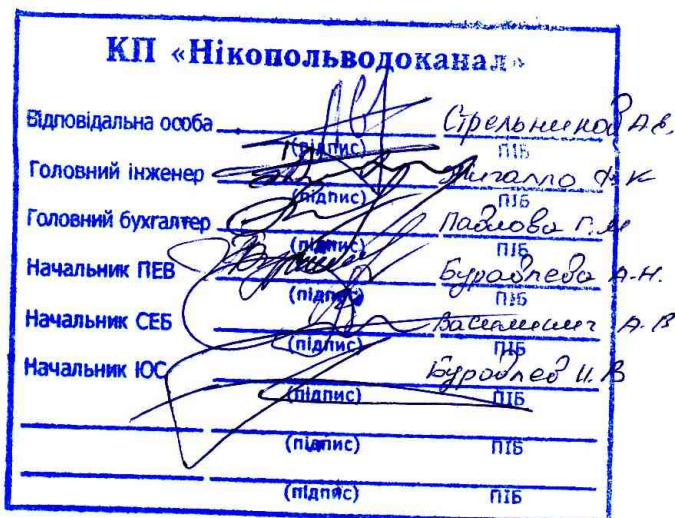 КП «Нікопольводоканал»
Відповідальна особа Стрельников А.В.
(підпис) ПІБ
Головний інженер Ф.К
(підпис) ПІБ
Головний бухгалтер Павлова Г.М
(підпис) ПІБ
Начальник ПЕВ Буравлева А.Н.
(підпис) ПІБ
Начальник СЕБ А.В
(підпис) ПІБ
Начальник ЮС Буравлев И.В
(підпис) ПІБ
(підпис) ПІБ
(підпис) ПІБ